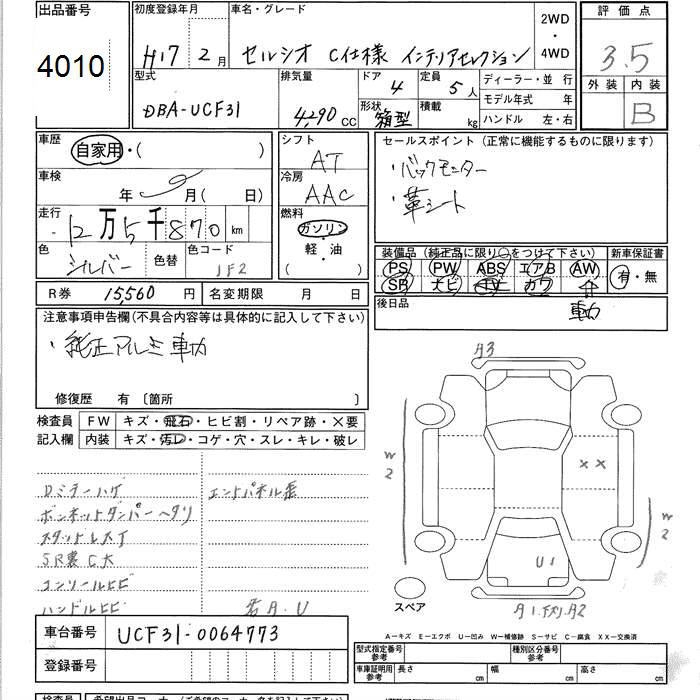 出品番号
4010
初度登録年月
H17 2月
車名・グレード
セルシオ C仕様 インテリアセレクション
2WD
・
4WD
評価点
3.5
外装 内装
B
型式
DBA-UCF31
排気量
4,290 CC
ドア
4
定員
5人
形状
箱型
積載
kg
ディーラー・並行
モデル年式 年
ハンドル 左・右
車歴
自家用・( )
車検
年 月( 日)
走行
12万5千870km
色
シルバー
色替
色コード
1F2
シフト
AT
冷房
AAC
燃料
ガソリン
・
軽・油
( )
セールスポイント (正常に機能するものに限ります)
・バックモニター
・革シート
装備品 (純正品に限り○をつけて下さい)
新車保証書
PS PW ABS エアB AW
SR ナビ TV カワ
有・無
革力
後日品
R券 15,560円
名変期限 月 日
注意事項申告欄(不具合内容等は具体的に記入して下さい)
・純正アルミ 車力
修復歴 有 〔箇所 〕
検査員
記入欄
FW キズ・飛石・ヒビ割・リペア跡・X要
内装 キズ・汚レ・コゲ・穴・スレ・キレ・破レ
Dミラーハゲ
ボンネットダンパーヘタリ
SR裏C大
ハンドルヒビ
A3
W
2
XX
W
2
U1
A2
スペア
A－キズ E－エクボ U－凹み W－補修跡 S－サビ C－腐食 XX－交換済
車台番号 UCF31-0064773
登録番号
型式指定番号
参考
種別区分番号
参考
車庫証明用
参考
長さ cm
幅 cm
高さ cm